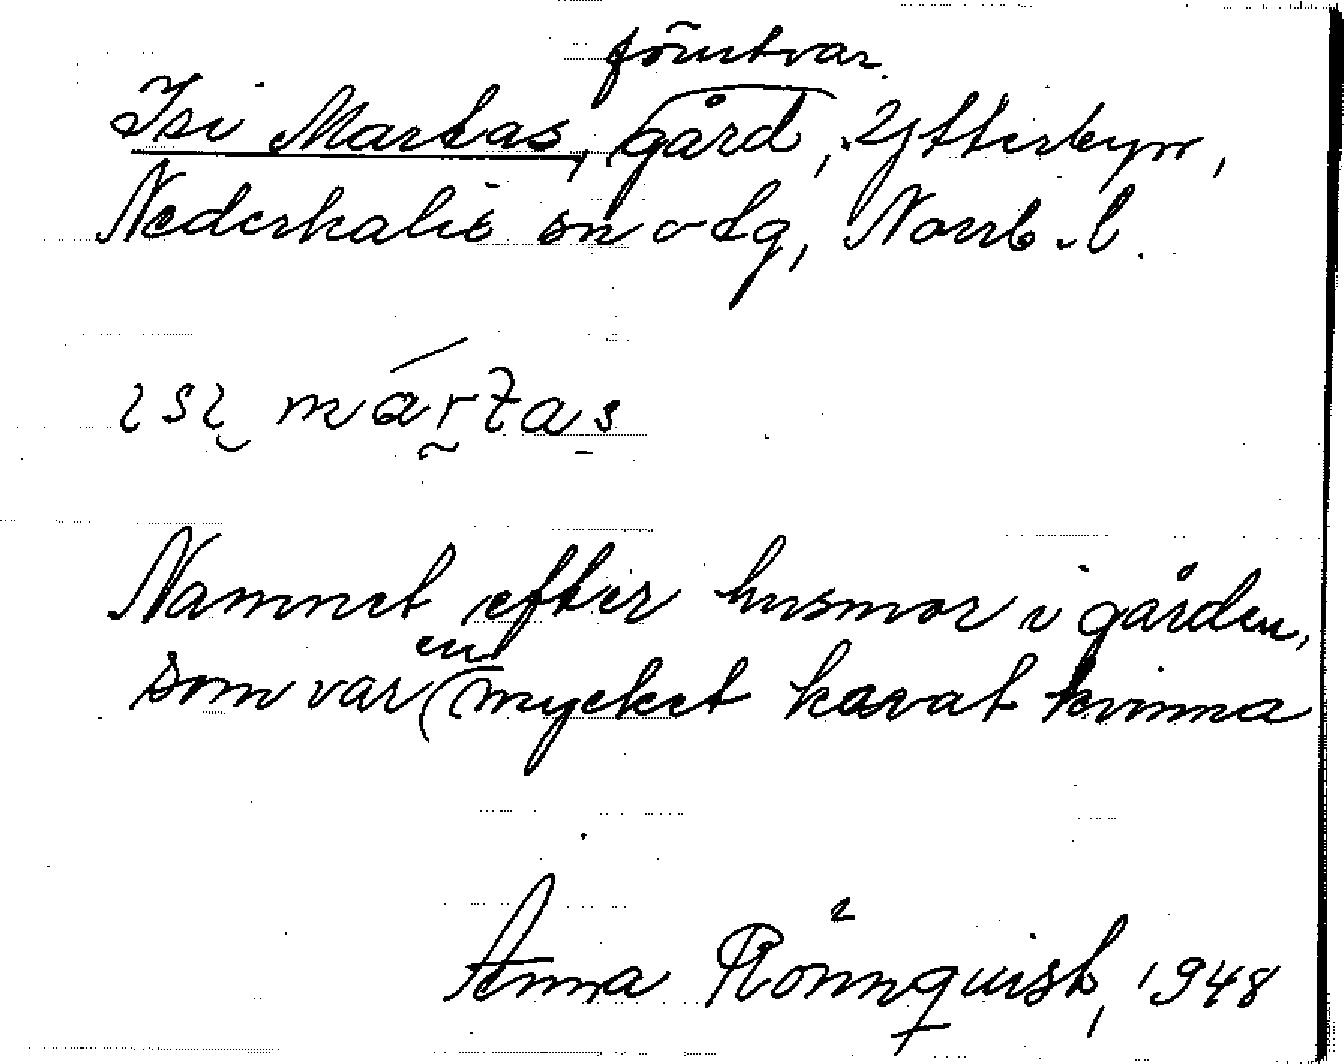 förutvar.
Isi Martas, gård, Ytterbyn,
Nederkalix sn o tg, Norrb. l.
ısı mártas
Namnet efter husmor i gården,
en
som var mycket karat kvinna
Anna Rönnquist, 1948